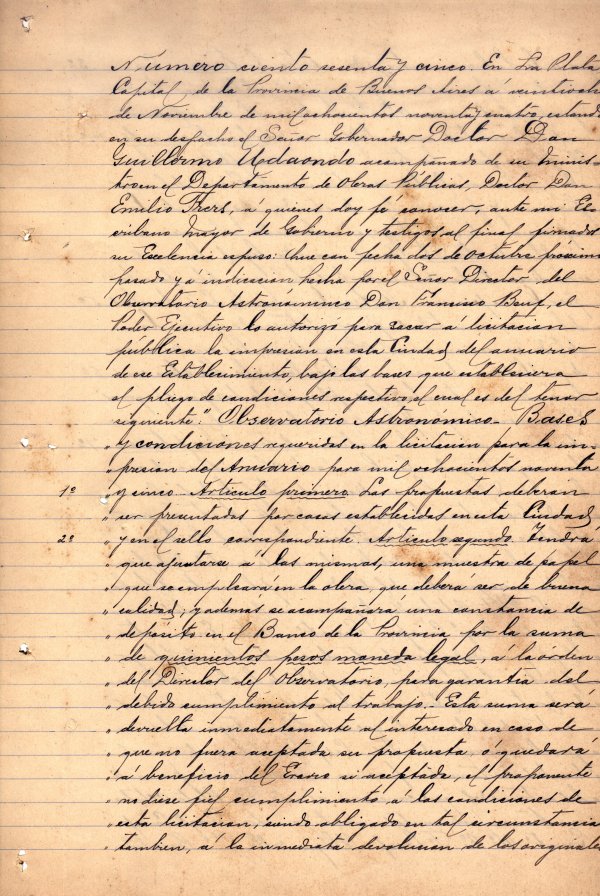 Número ciento sesenta y cinco. En La Plata
Capital, de la Provincia de Buenos Aires á veintioch
de Noviembre de mil ochocientos noventa y cuatro, estand
en su despacho el Señor Gobernador Doctor Don
Guillermo Udaondo acompañado de su Minis-
tro en el Departamento de Obras Públicas, Doctor Don
Emilio Frers, á quienes doy fé conocer, ante mi Es-
cribano Mayor de Gobierno y testigos al final firmados
su Excelencia espuso: Que con fecha dos de Octubre próximo
pasado y á indicacion hecha por el Señor Director del
Observatorio Astronóminco Don Francisco Beuf, el
Poder Ejecutivo lo autorizo para sacar á licitacion
pública la impresion en esta Ciudad del anuario
de ese Establecimiento, bajo las bases que establesiera
el pliego de condiciones respectivo el cual es del tenor
siguiente: "Observatorio Astronómico - Bases
" y condiciones requeridas en la licitacion para la im-
" presion del Anuario para mil ochocientos noventa
1º " y cinco - Articulo primero. Las propuestas deberan
" ser presentadas por casas establecidas en esta Ciudad
2º " y en el sello correspondiente. Articulo segundo. Tendrá
" que ajustarse á las mismas, una muestra de papel
" que se empleará en la obra, que deberá ser de buena
" calidad; y además se acompañara una constancia de
" depósito en el Banco de la Provincia por la suma
" de quinientos pesos moneda legal, á la órden
" del Director del Observatorio, para garantia del
" debido cumplimiento al trabajo. - Esta suma será
" devuelta inmediatamente al interesado en caso de
" que no fuera aceptada su propuesta ó quedará
" á beneficio del Erario si aceptada, el proponente
" no diese fiel cumplimiento á las condiciones de
" esta licitacion, siendo obligado en tal circunstancia
" tambien, á la inmediata devolucion de los originales